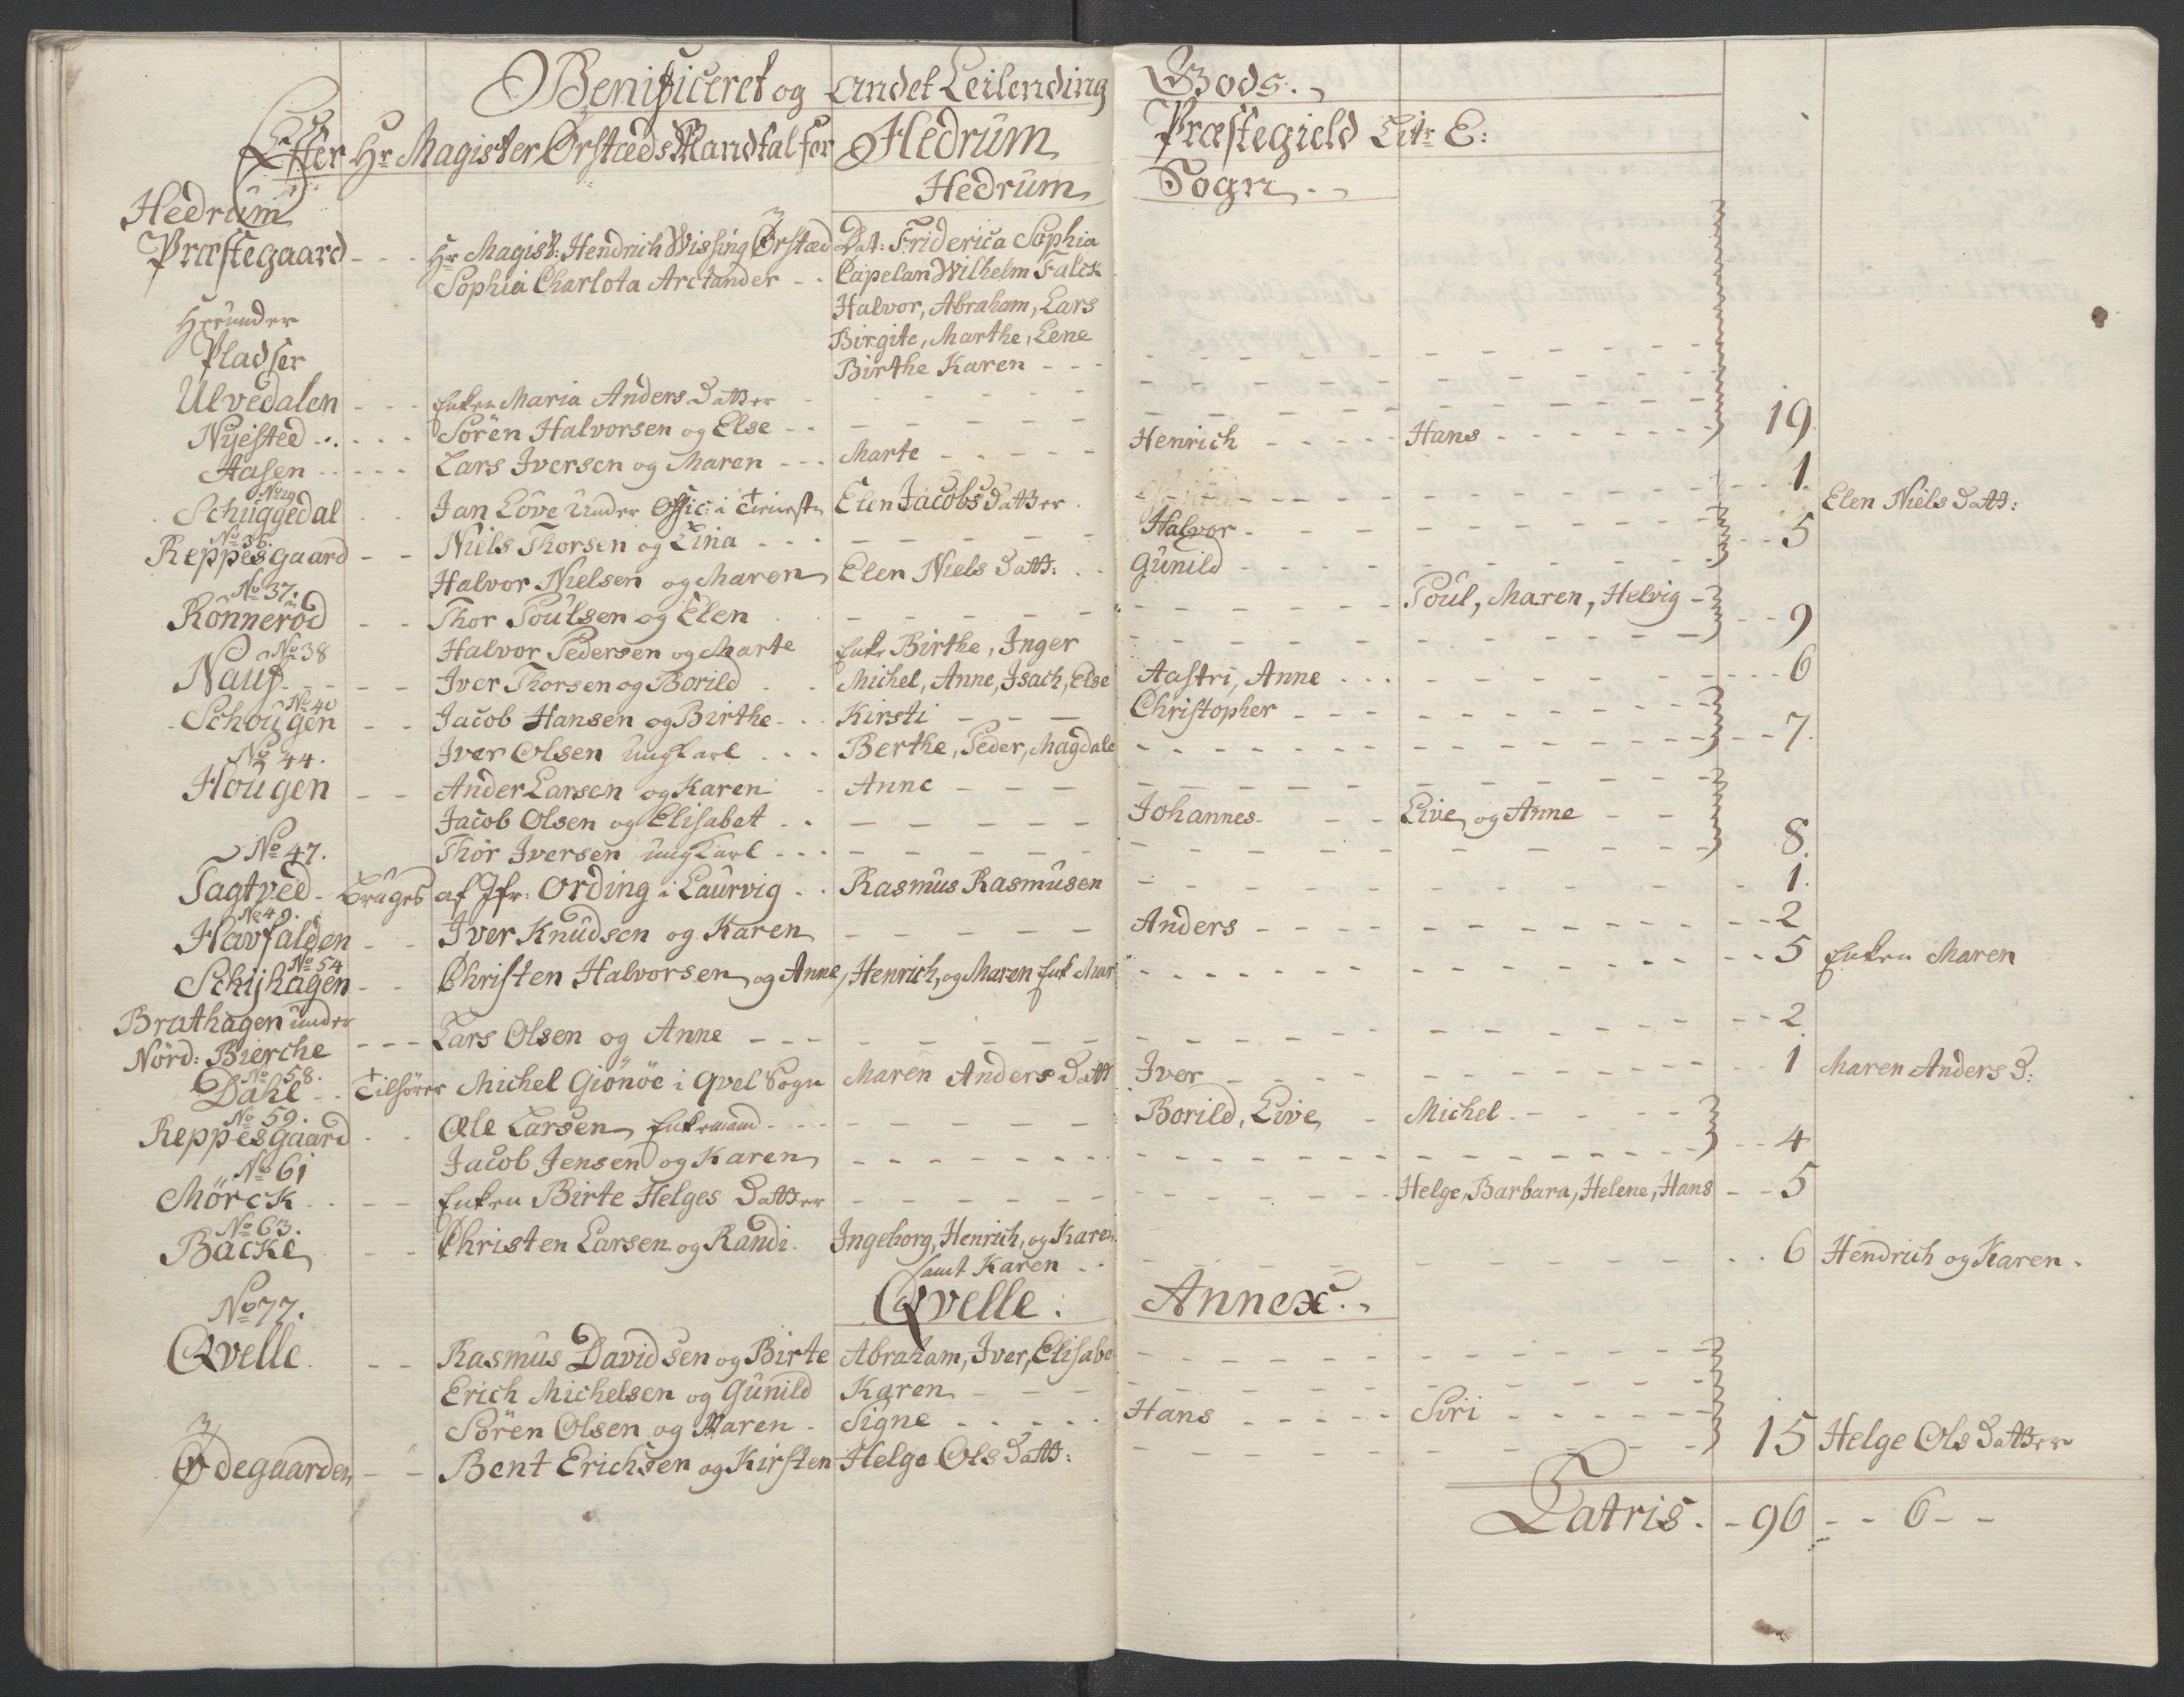 Benificeret og andet Leilending Gods.
Efter Hr Magister Ørstæds Mandtal for Hedrum Præstegield Litr E:
Hedrum Sogn.
Hedrum
Præstegaard - - - Hr Magist: Hendrich Wissing Ørstæd Dat: Friderica Sophia
Sophia Charlota Arctander - - Capelan Wilhelm Falck
Halvor, Abraham, Lars
Herunder
Birgite, Marthe, Lene
Pladser
Birthe Karen - - -
Ulvedalen - - - Enken Maria Anders Datter
Nyested - - - Søren Halvorsen og Else - - Henrich - - - Hans - - - 19
Aasen - - - Lars Iversen og Maren - - - Marte - - -
No 29
Schuggedal - - Jan Löve Under Offic: i Tienest Elen Jacobs Datter - - - 1. Elen Niels Datt:
No 36.
Reppesgaard - - Niels Thorsen og Lina - - - Halvor - - - 5
Halvor Nielsen og Maren Elen Niels Datt: - - Gunild - - -
No 37.
Rönneröd - - Thor Poulsen og Elen - - - Poul, Maren, Helvig - - - 9
Halvor Pedersen og Marte Enke Birthe, Inger
No 38
Nauf - - - Iver Thorsen og Borild - - Michel, Anne, Isach, Else Aastri, Anne - - - 6
No 40
Schougen - - Jacob Hansen og Birthe - - Kirsti - - - Christopher - - - 7.
Iver Olsen ungkarl - - - Berthe, Peder, Magdale
No 44.
Hougen - - Ander Larsen og Karen - Anne - - -
Jacob Olsen og Elisabet - - Johannes - - - Live og Anne - - 8.
Thor Iversen ungkarl - - -
No 47.
Tagtved - bruges af Jfr: Ording i Laurvig - - Rasmus Rasmusen - - - 1.
No 49.
Havfalden - - Iver Knudsen og Karen - - - Anders - - - 2
No 54
Schijhagen - - Christen Halvorsen og Anne, Henrich, og Maren Enk Mar - - - 5 Enken Maren
Brathagen under
Nörd: Bierche - - - Lars Olsen og Anne - - - 2
No 58.
Dahl - - Tilhörer Michel Giönöe i Qvel Sogn Maren Anders Datt Iver - - - 1 Maren Anders D:
No 59.
Reppesgaard - - Ole Larsen Enkemand - - - Borild, Live - Michel - - - 4
Jacob Jensen og Karen - - -
No 61
Mörck - - - Enken Birte Helges Datter - - - Helge, Barbara, Helene, Hans - - 5
No 63.
Backe - - - Christen Larsen og Randi. Ingeborg, Henrich, og Karen
samt Karen - - - - - 6 Hendrich og Karen.
Qvelle. Annex.
No 77.
Qvelle - - Rasmus Davidsen og Birte Abraham, Iver, Elisabe
Erich Michelsen og Gunild Karen - - -
Sören Olsen og Maren - Signe - - - Hans - - - Siri - - -
Ødegaarden - - Bent Erichsen og Kirsten Helge Ols Datt: - - - 15 Helge Ols Datter
Latris. - 96 - - 6 - -